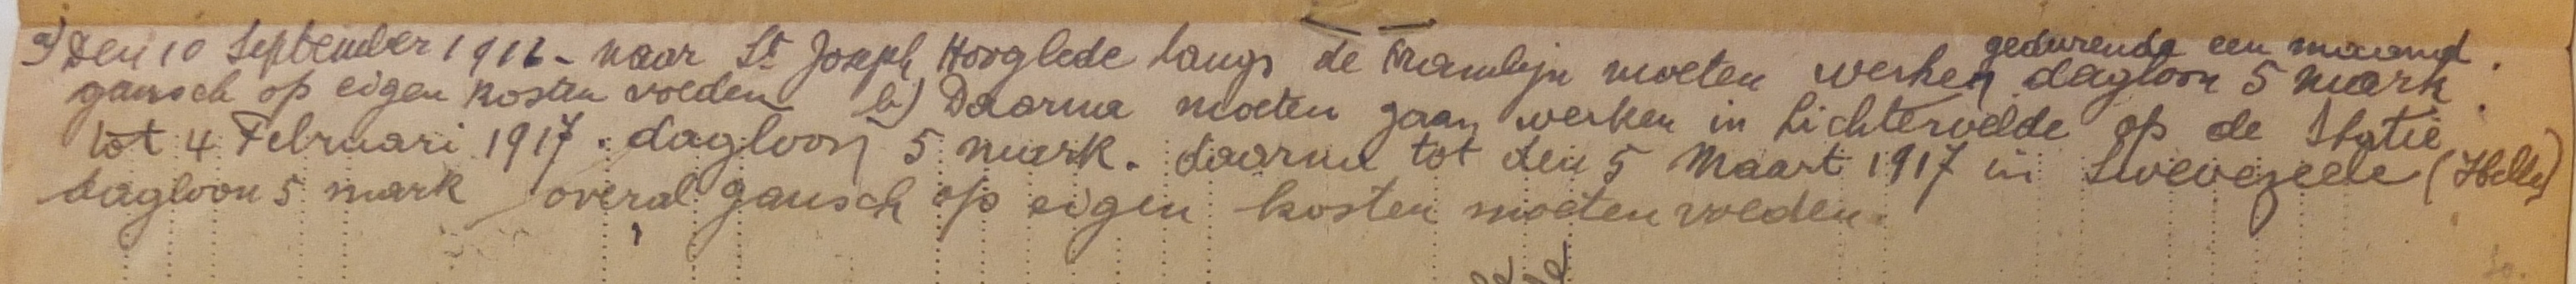 a) Den 10 September 1916 - naar St Joseph Hooglede langs de tramlijn moeten werken gedurende een maand.
gansch op eigen kosten voeden b) Daarna moeten gaan werken in Lichtervelde op de Statie
dagloon 5 mark.
tot 4 Februari 1917. dagloon 5 mark. daarna tot den 5 Maart 1917 in Swevezeele (Hille)
dagloon 5 mark overal gansch op eigen kosten moeten voeden.